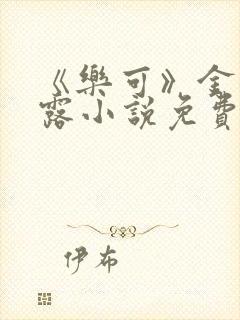 《樂可》金
露小說免費
伊布